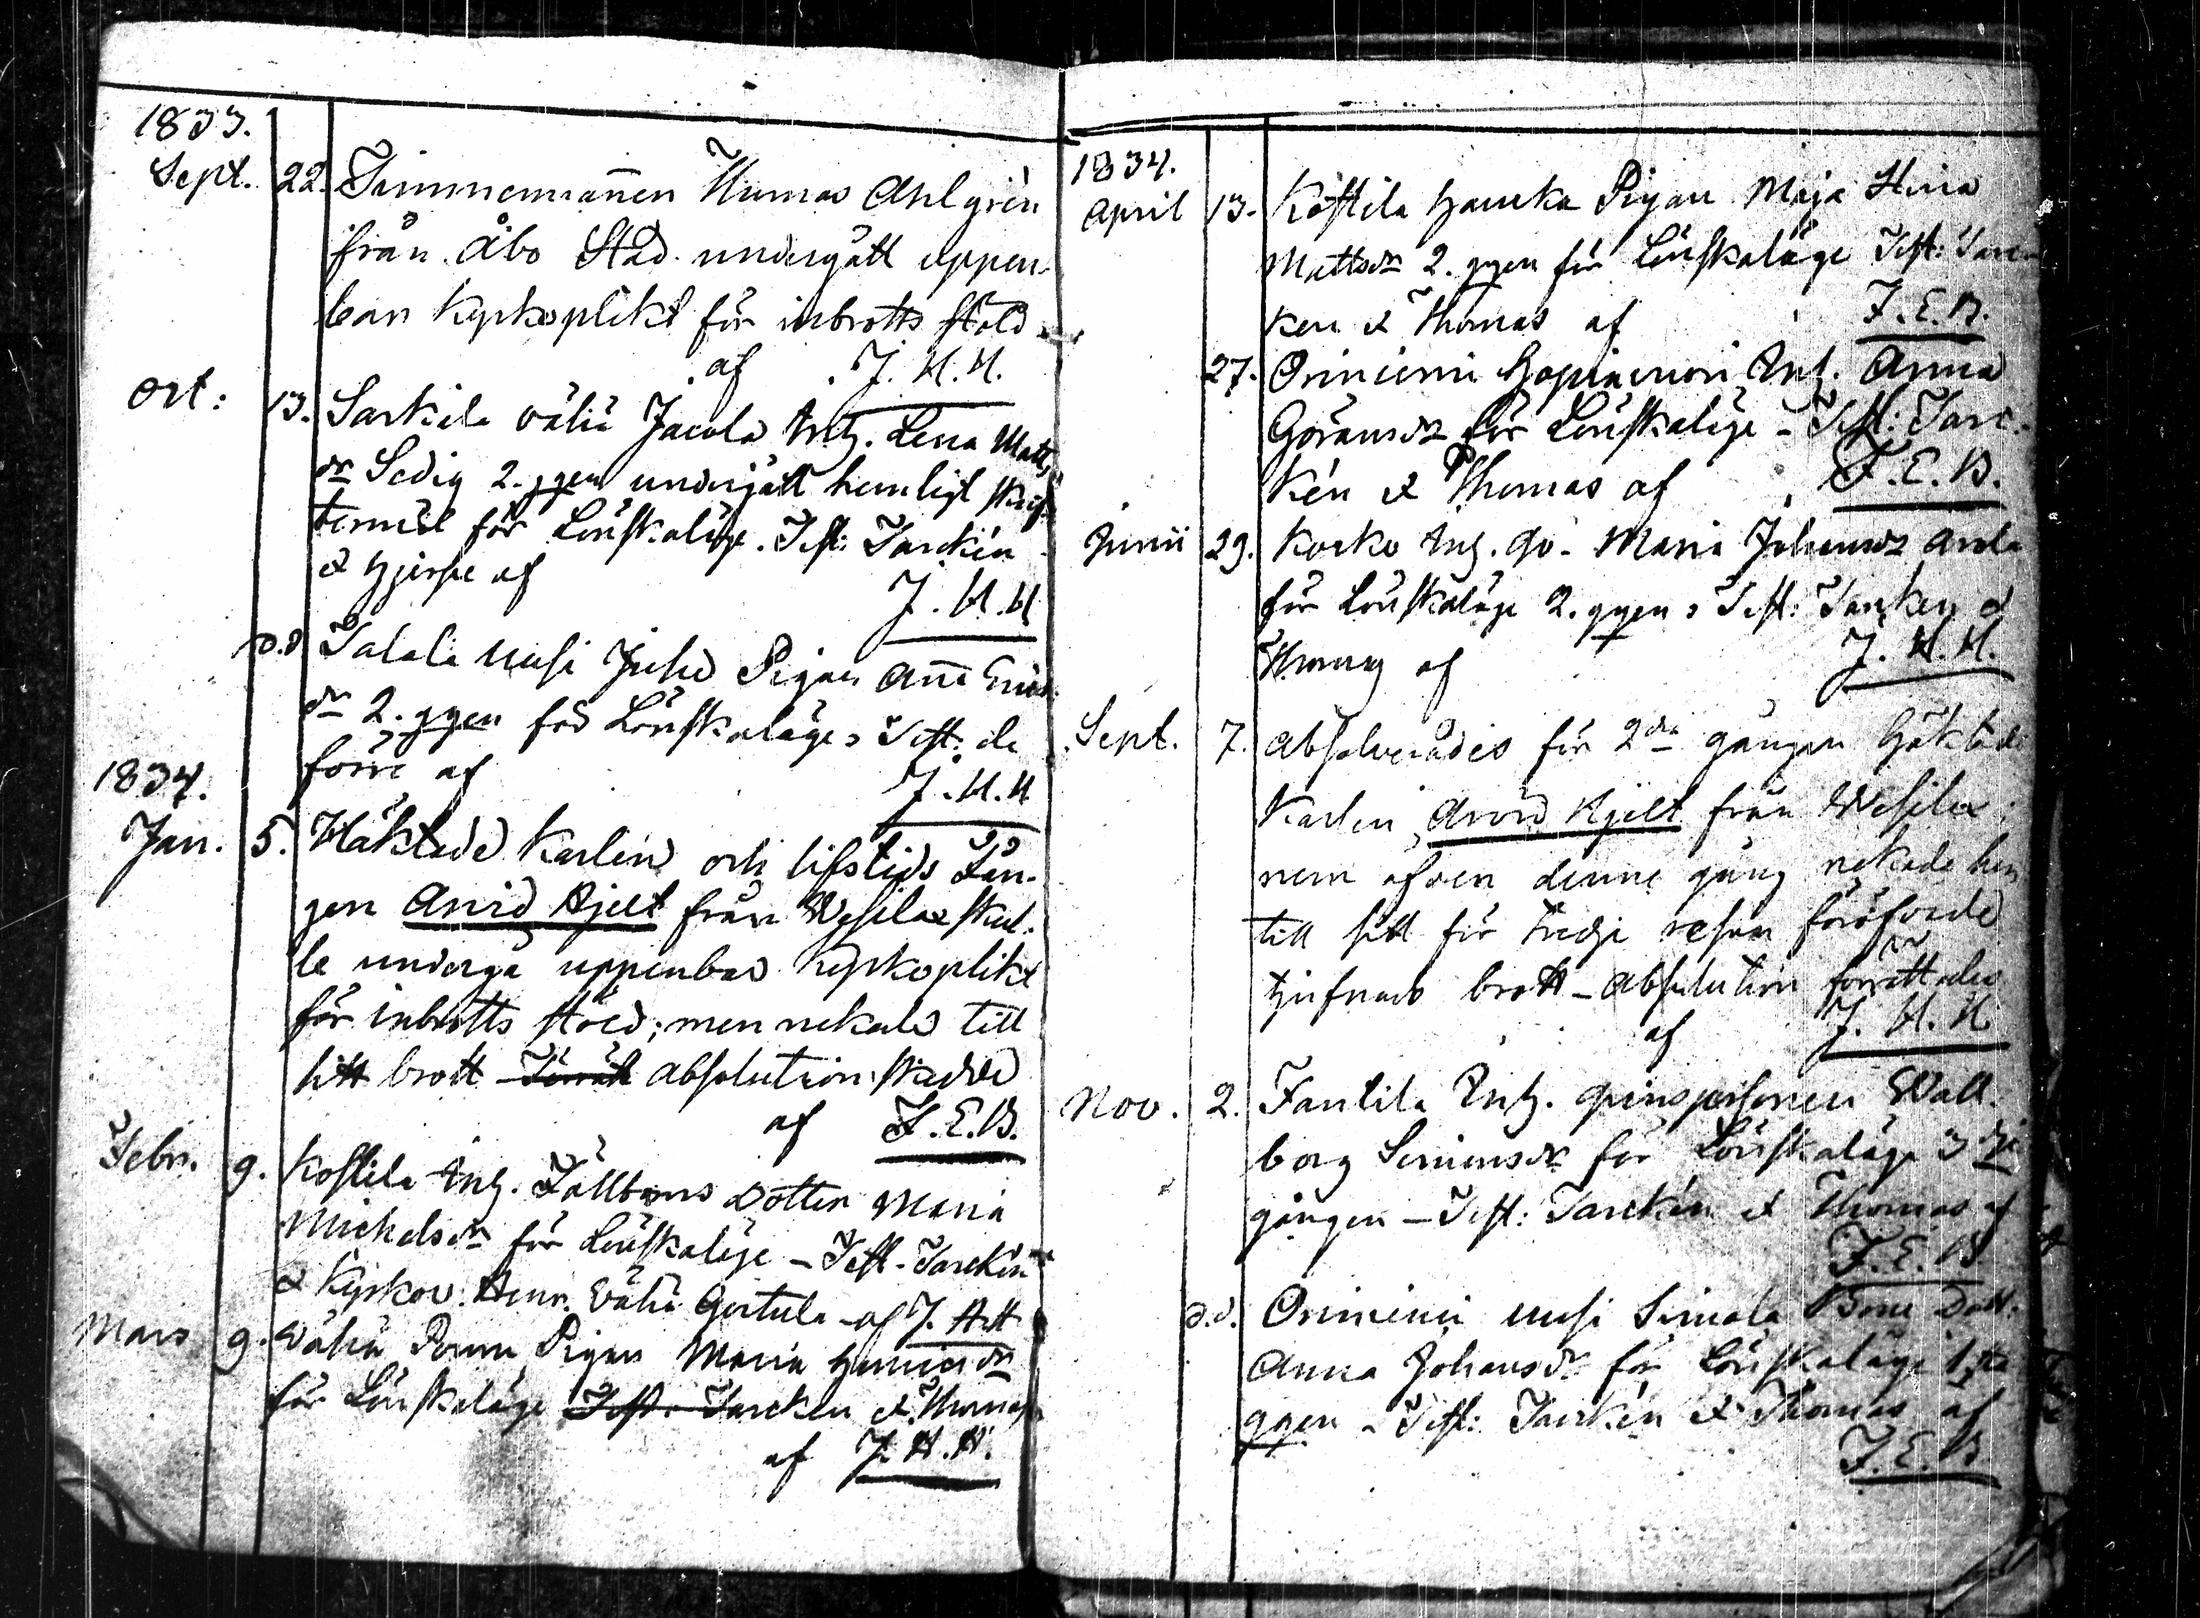 1833.
Sept. 22. Timmermannen Thomas Ahlgrén
från Åbo Stad undergått uppen-
bar Kyrkoplikt för inbrotts stöld
af J. H. H.
Oct: 13. Sarkila Vähä Jacola Inh. Lena Matts
dr Ledig 2. ggen undergått hemligt skrif-
termål för Lönskaläge. Test: Tarckén
& Hjerpe af
J. H. H
d.d. Talala Uusi Juho Pigan Anna Erics
dr 2. ggen för Lönskaläge, Test: de
förre af
J. H. H
1834.
Jan. 5. Häktade Karlen och lifstids Fån-
gen Arvid Hjelt från Wesilax skul-
le undergå uppenbar Kyrkoplikt
för inbrotts stöld; men nekade till
sitt brott absolution skedde
af F. E. B.
Febr. 9. Kostila Inh. Fältbons Dotter Maria
Michelsdr för Lönskaläge – Test. Tarckén
& Kyrkov. Henr. Vähä Gertula af J. H. H
Mars 9. Vähä Pigan Maria Henricsdr
för Lönskaläge Test: Tarcken & Thomas
af J. H. H.
1834.
April 13. Köstila Haucka Pigan Maja Stina
Mattsdr 2. ggen för Lönskaläge Test: Tarc-
ken & Thomas af F. E. B.
27. Onniemi Inh. Anna
Göransdr för Lönskaläge – Test: Tarc-
kén & Thomas af F. E. B.
Junii 29. Korko Inh. Maria Johansdr
för Lönskaläge 2. ggen, Test: Tarcken &
Thomas af J. H. H.
Sept. 7. Absolverades för 2dra gången Häktade
Karlen Arvid Hjelt från Wesilax;
men äfven denne gång nekade han
till sitt för tredje resan föröfvade
tjufnads brott – Absolution förrättades
af J. H. H.
Nov. 2. Fantila Inh. qvinspersonen Wall-
borg Simonsdr för Lönskaläge 3dje
gången – Test: Tarckén & Thomas af
F. E. B.
d.d. Onniemi Uusi Simola Bone Dott.
Anna Johansdr för Lönskaläge 1sta
ggen – Test: Tarckén & Thomas af
F. E. B